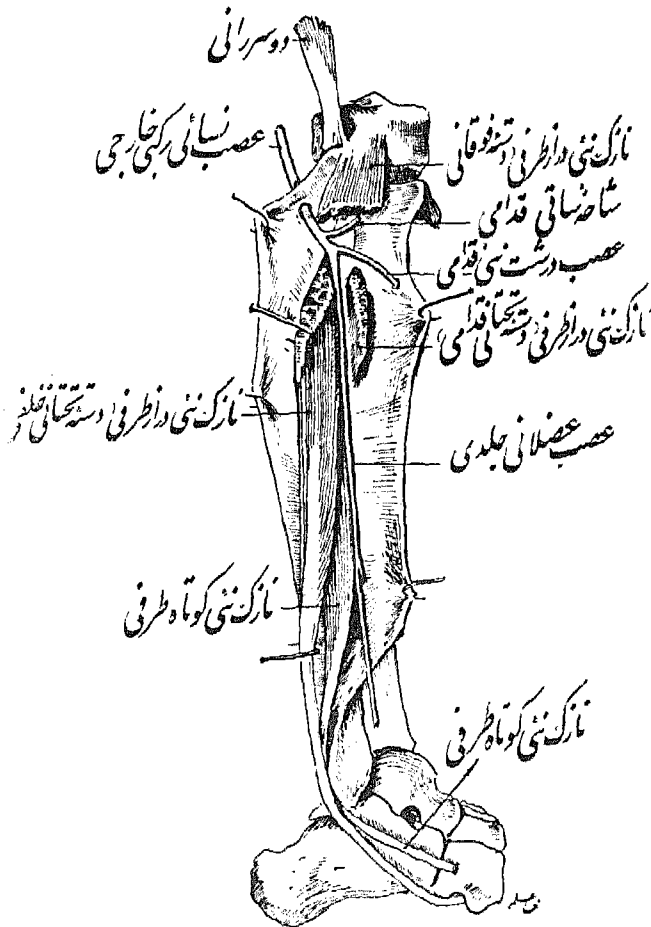 دو سر رانی
عصب نسائی رکبی خارجی
نازک نئی دراز طرفی (دسته فوقانی
شاخه ساقی قدامی
عصب درشت نئی قدامی
نازک نئی دراز طرفی (دسته تحتانی قدامی)
نازک نئی دراز طرفی (دسته تحتانی خلفی
عصب عضلانی جلدی
نازک نئی کوتاه طرفی
نازک نئی کوتاه طرفی